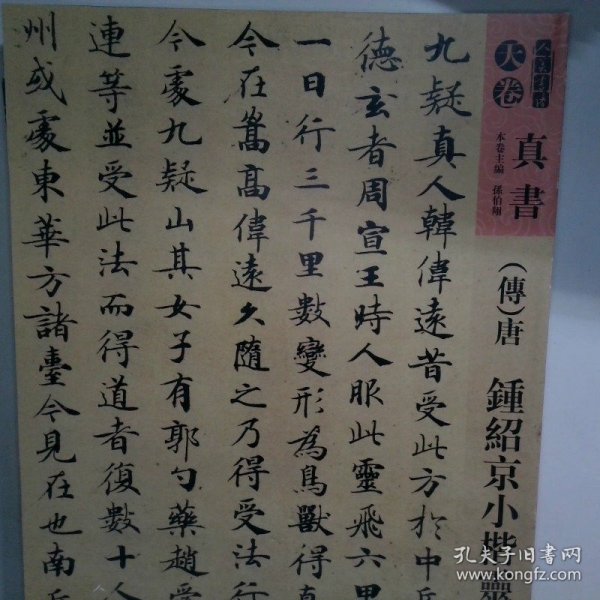 九疑真人韓偉遠昔受此方於中岳
德玄者周宣王時人服此靈飛六甲
一日行三千里數變形為鳥獸得真
今在嵩高偉遠久隨之乃得受法行
今處九疑山其女子有郭勺藥趙愛
連等並受此法而得道者復數十人
州或處東華方諸臺今見在也南岳
大卷
真書
本卷主編 孫伯翔
(傳)唐 鍾紹京小楷靈
孔夫子旧书网
www.kongfz.com